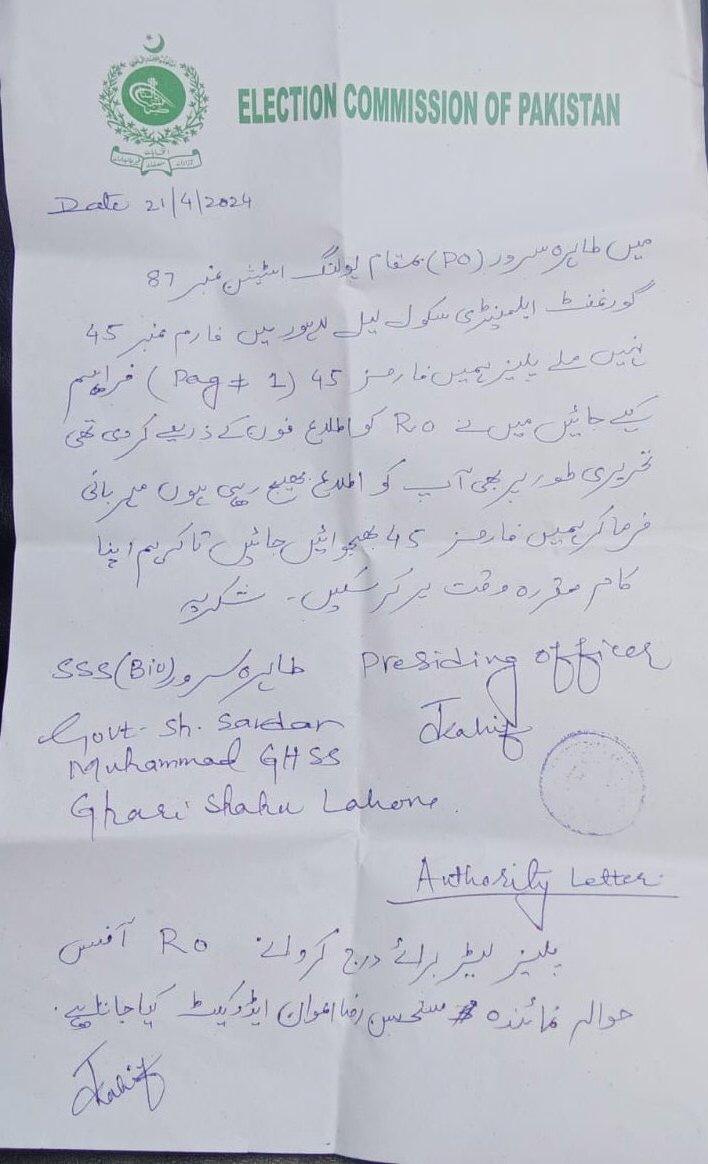 ELECTION COMMISSION OF PAKISTAN
Date 21/4/2024
میں طاہرہ سرور (PO) بمقام پولنگ اسٹیشن نمبر 87
گورنمنٹ ایلمینٹری سکول لیل لاہور میں فارم نمبر 45
نہیں ملے پلیز ہمیں فارمز 45 (Pag # 1) فراہم
کیے جائیں میں نے RO کو اطلاع فون کے ذریعے کر دی تھی
تحریری طور پر بھی آپ کو اطلاع بھیج رہی ہوں مہربانی
فرما کر ہمیں فارمز 45 بھجوائیں جائیں تاکہ ہم اپنا
کام مقررہ وقت پر کر سکیں۔ شکریہ
Presiding officer طاہرہ سرور SSS(Bio)
Govt- Sh. Sardar
Muhammad GHSS
Ghari Shahu Lahore.
Authority Letter.
پلیز لیٹر برائے درج کروانے RO آفس
حوالہ نمائندہ رضا اعوان ایڈوکیٹ کیا جاتا ہے۔